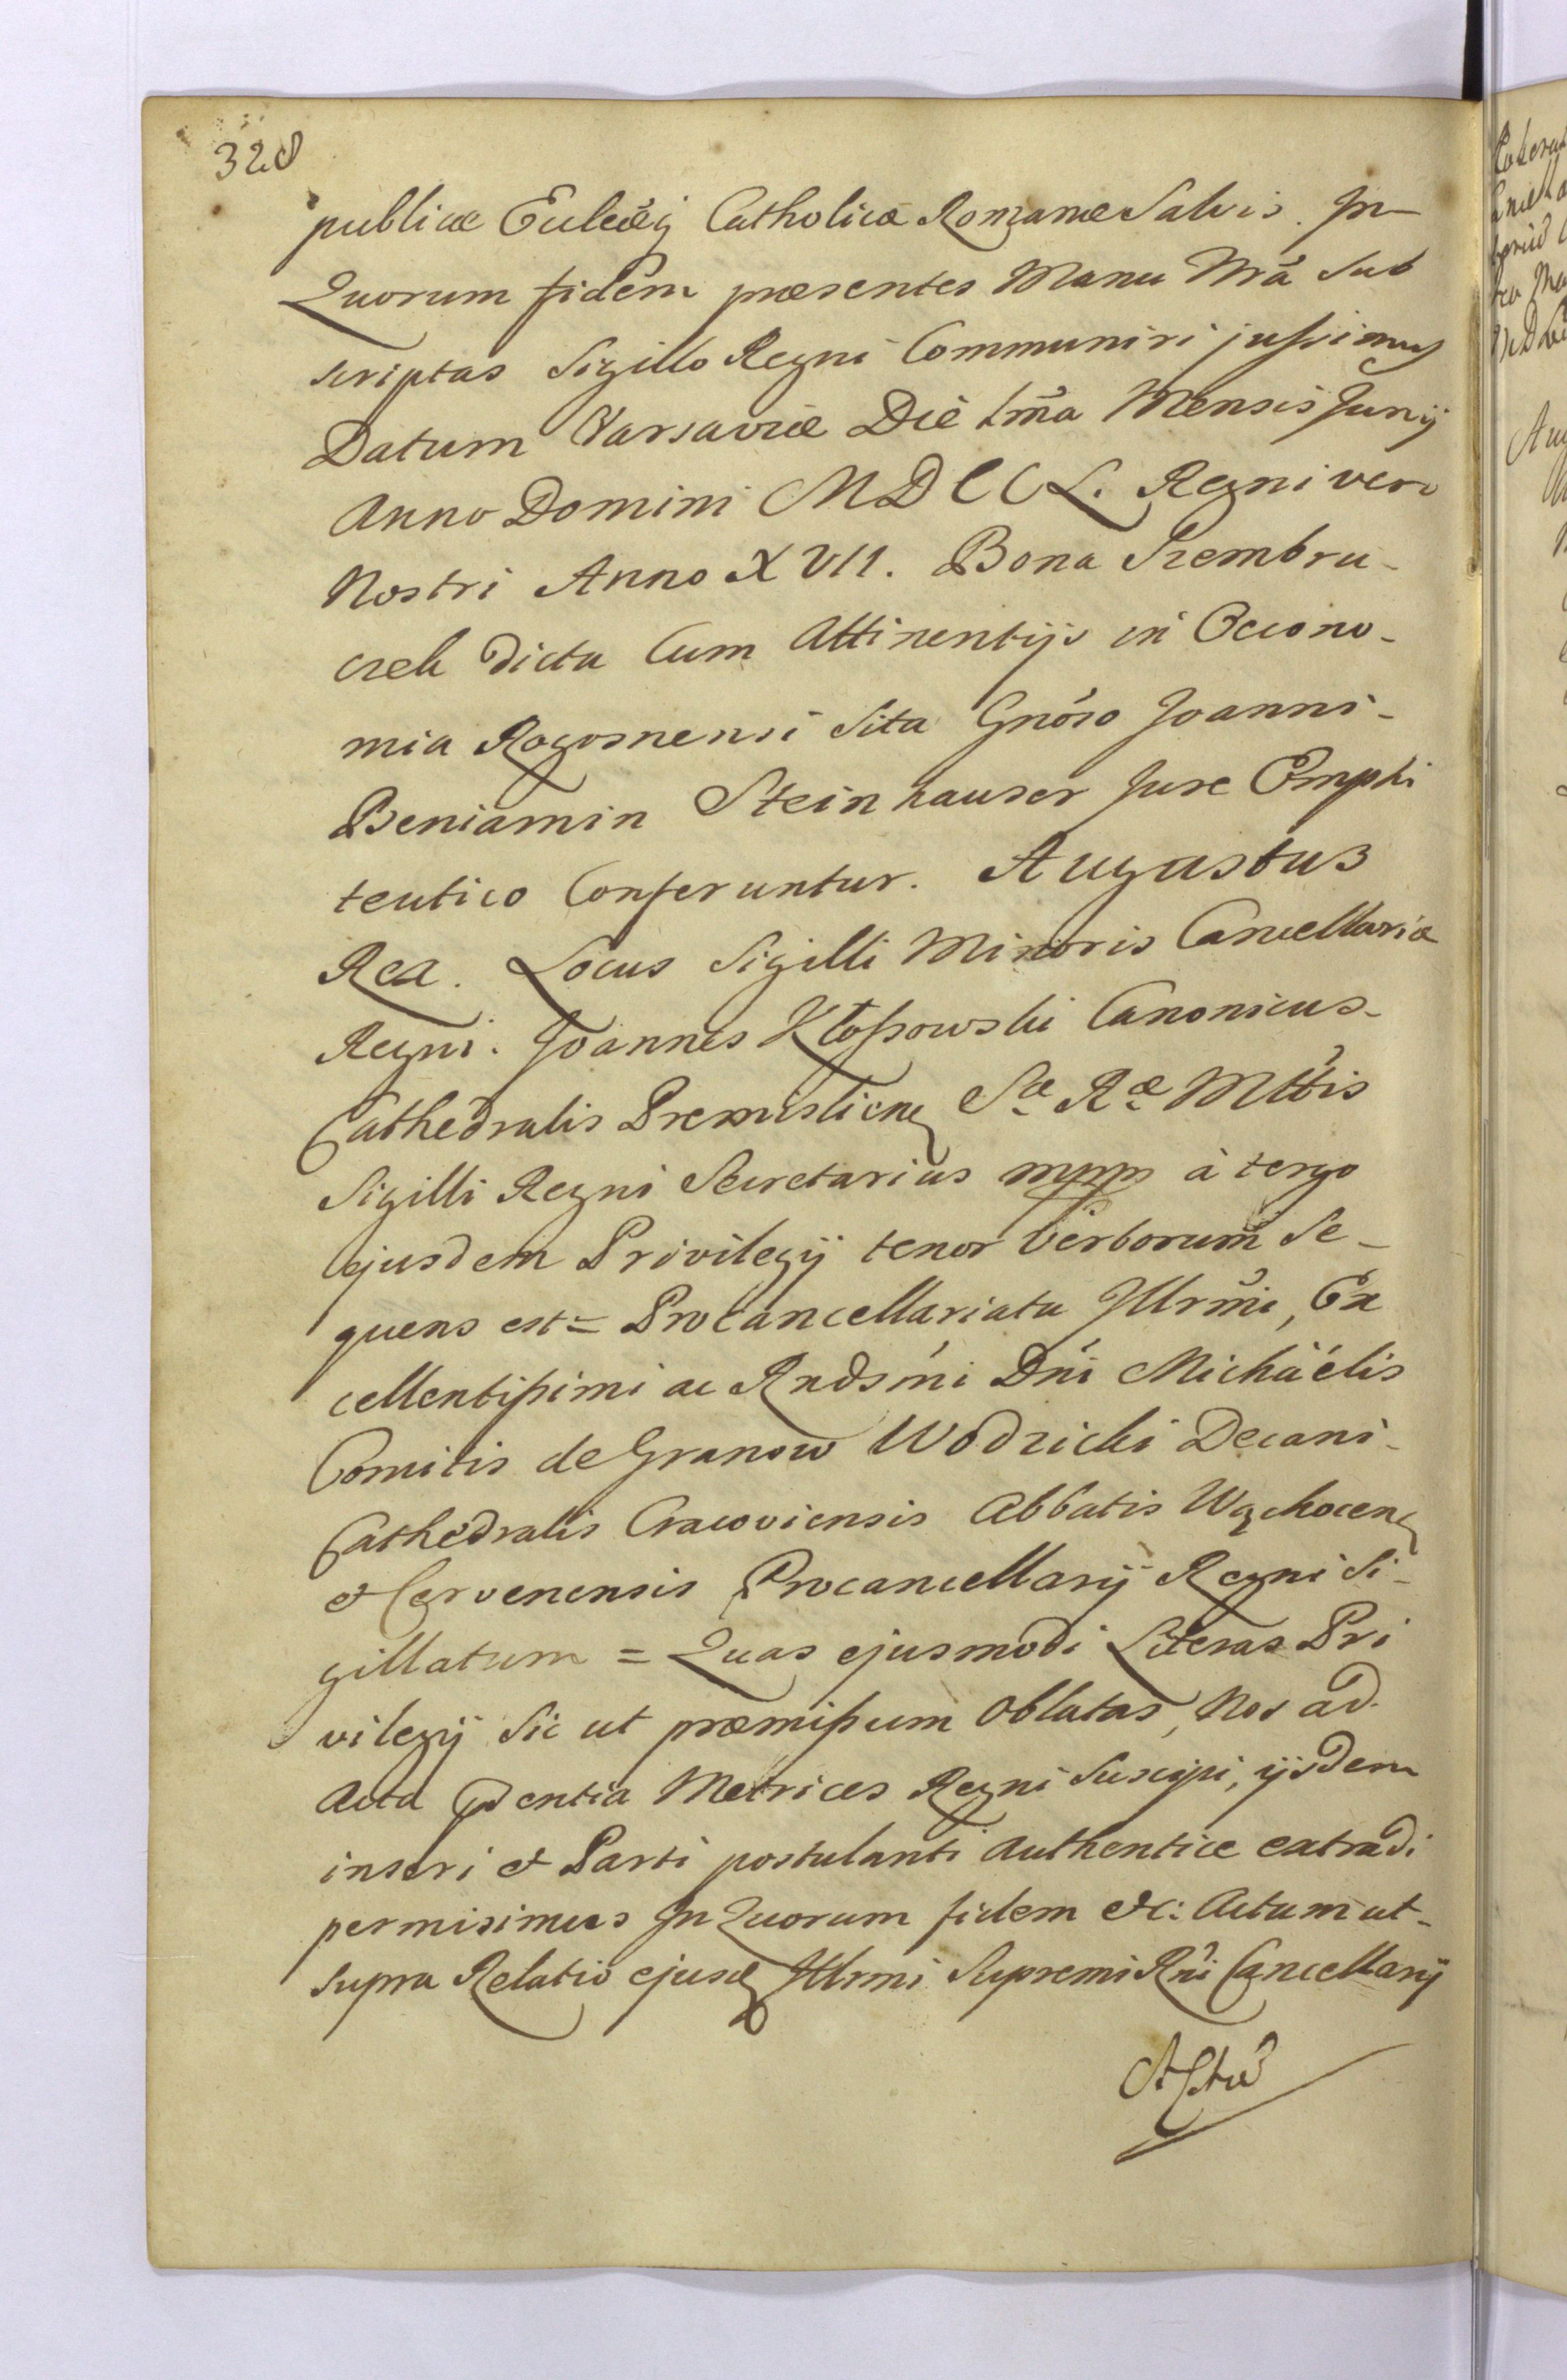 328
publicæ Eccleæq Catholicæ Romanæ Salvis. In
Quorum fidem præsentes Manu Nrã Sub
scriptas Sigillo Regni Communiri jussimus
Datum Varsaviæ Die 1ma Mensis Junij
Anno Domini MDCCL. Regni vero
Nostri Anno XVII. Bona Szembru-
czek dicta Cum Attinentijs in Oecono-
mia Rogosnensi Sita Gnóso Joanni-
Beniamin Steinhauser Jure Emphi
teutico Conferuntur. Augustus
Rex. Locus Sigilli Minoris Cancellariæ
Regni. Joannes Kłossowski Canonicus-
Cathedralis Premislien Sæ Ræ Mttis
Sigilli Regni Secretarius mpp à tergo
ejusdem Privilegij tenor Verborum Se-
quens est = Procancellariatu Illrmi, Ex
cellentissimi ac Rndsmi Dni Michäélis
Comitis de Granow Wodzicki Decani-
Cathedralis Cracoviensis Abbatis Wąchocen
et Czervenensis Procancellarij Regni Si-
gillatum = Quas ejusmodi Literas Pri
vilegij Sic ut præmissum Oblatas, Nos ad
Acta Metrices Regni Suscipi, ijsdem
inseri et Parti postulanti Authentice extradi
permisimus In Quorum fidem etc: Actum ut-
supra Relatio ejusd Illrmi Supremi Rni Cancellarij